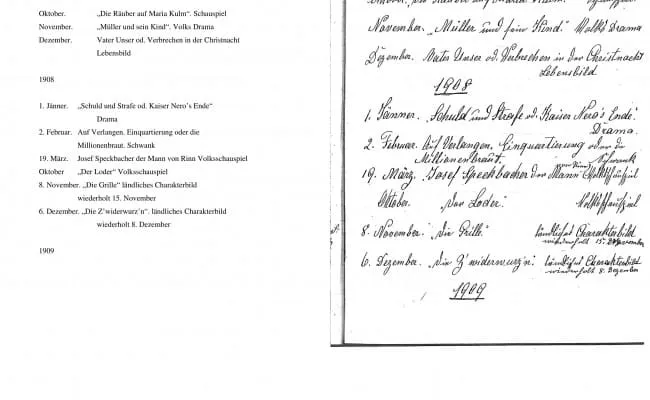 Oktober. „Die Räuber auf Maria Kulm“. Schauspiel
November. „Müller und sein Kind“. Volks Drama
Dezember. Vater Unser od. Verbrechen in der Christnacht
Lebensbild
1908
1. Jänner. „Schuld und Strafe od. Kaiser Nero’s Ende“
Drama
2. Februar. Auf Verlangen. Einquartierung oder die
Millionenbraut. Schwank
19. März. Josef Speckbacher der Mann von Rinn Volksschauspiel
Oktober „Der Loder“ Volksschauspiel
8. November. „Die Grille“ ländliches Charakterbild
wiederholt 15. November
6. Dezember. „Die Z’widerwurz’n“. ländliches Charakterbild
wiederholt 8. Dezember
1909
November. „Müller und sein Kind.“ Volks Drama
Dezember. Vater Unser od. Verbrechen in der Christnacht
Lebensbild
1908
1. Jänner. „Schuld und Strafe od. Kaiser Nero's Ende.“
Drama.
2. Februar. Auf Verlangen. Einquartierung oder die
Millionenbraut. Schwank
19. März. Josef Speckbacher der Mann von Rinn Volksschauspiel
Oktober. „Der Loder.“ Volksschauspiel
8. November. „Die Grille.“ ländliches Charakterbild
wiederholt 15. November
6. Dezember. „Die Z'widerwurz'n. ländliches Charakterbild
wiederholt 8. Dezember
1909